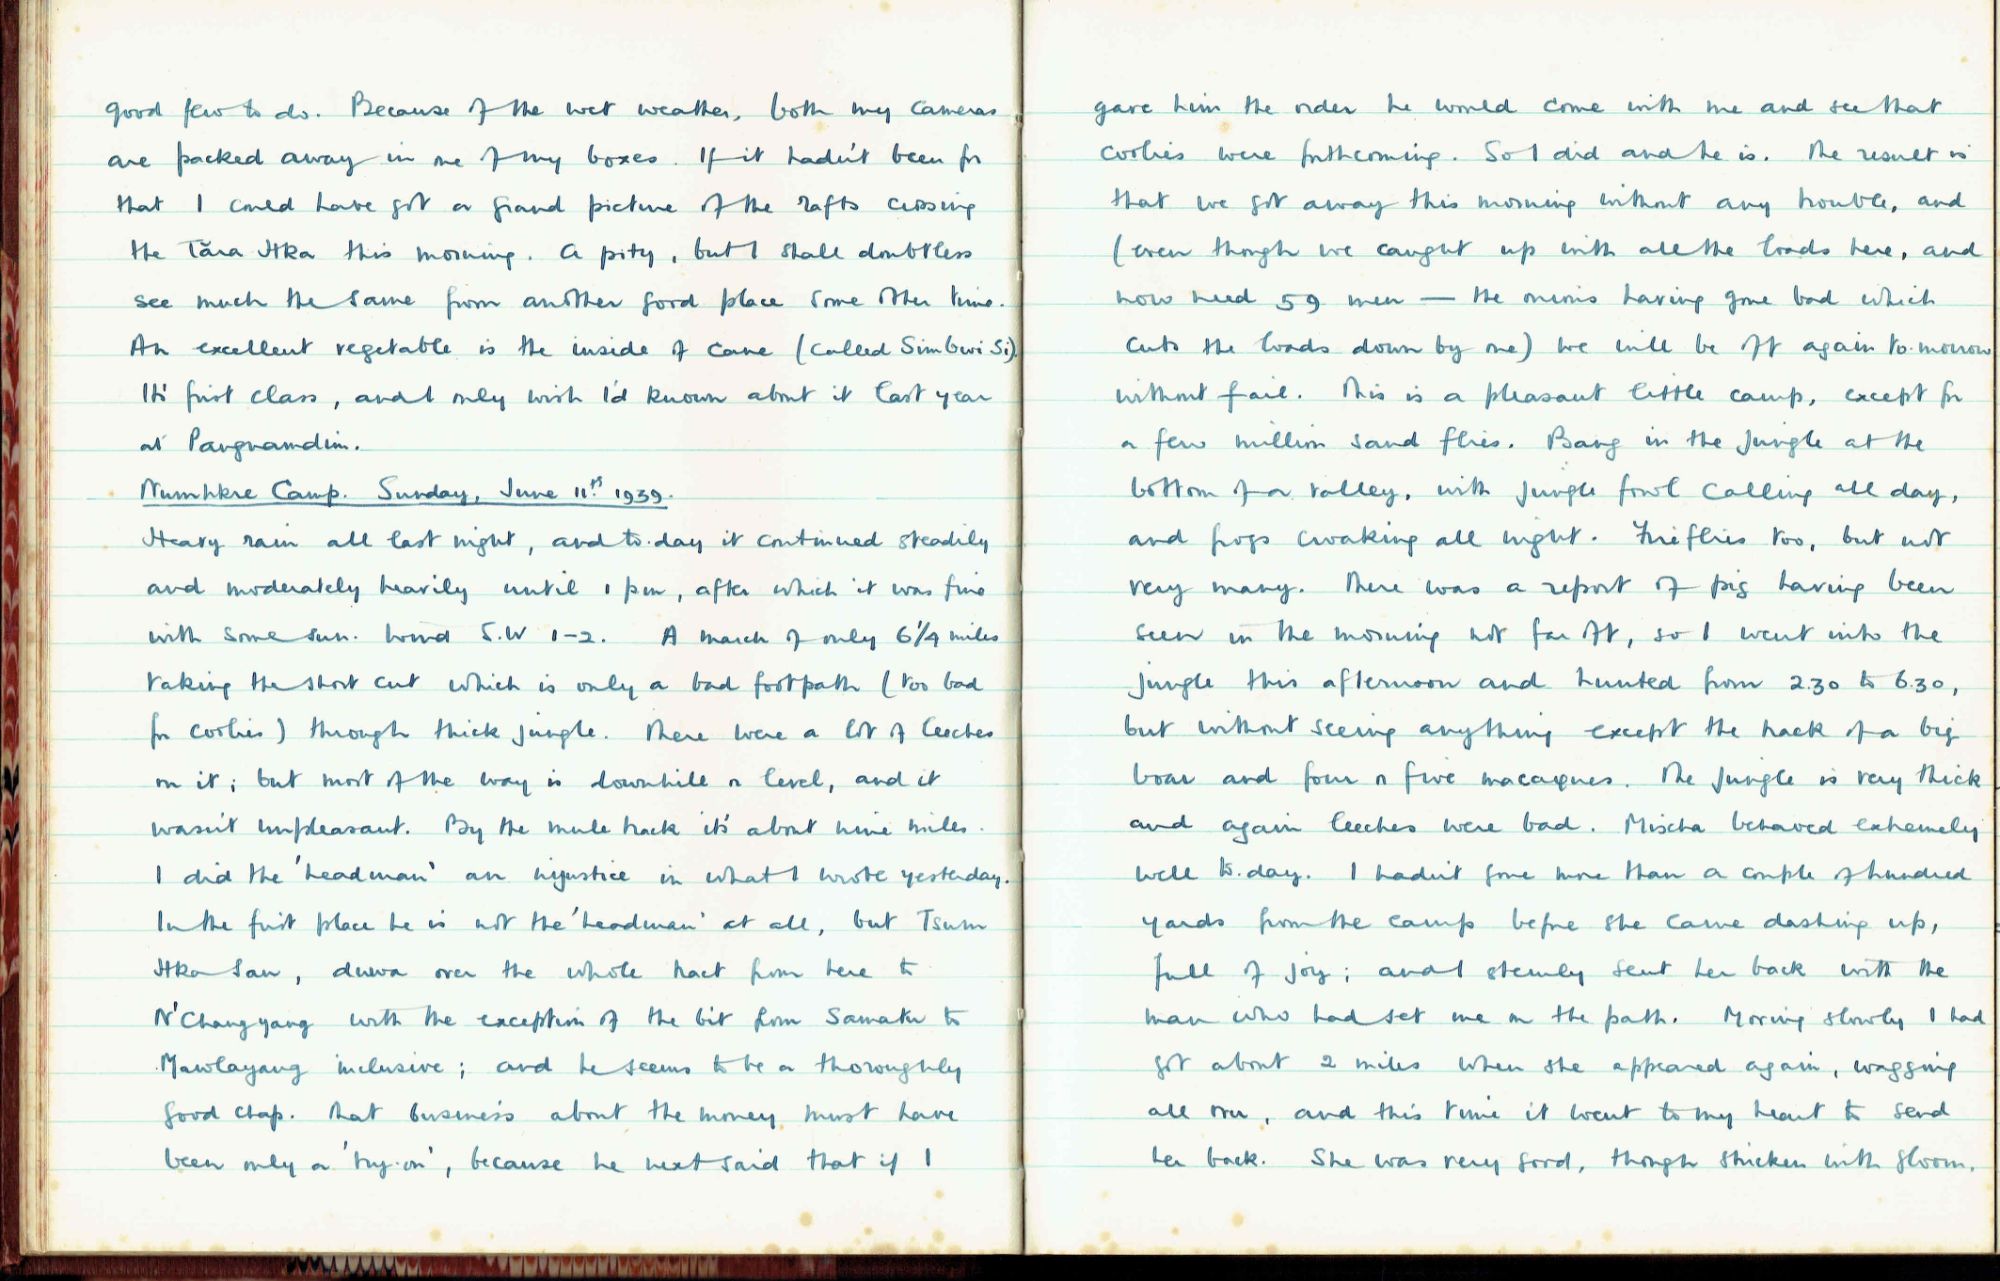 good few to do. Because of the wet weather, both my cameras
are packed away in one of my boxes. If it hadn't been for
that I could have got a grand picture of the rafts crossing
the Tăra Hka this morning. A pity, but I shall doubtless
see much the same from another good place some other time.
An excellent vegetable is the inside of cane (called Simbwi Si).
It's first class, and I only wish I'd known about it last year
at Pangnamdim.
Numhkre Camp. Sunday, June 11th 1939.
Heavy rain all last night, and to-day it continued steadily
and moderately heavily until 1 pm, after which it was fine
with some sun. Wind S.W 1-2. A march of only 6¼ miles
taking the short cut which is only a bad footpath (too bad
for coolies) through thick jungle. There were a lot of leeches
on it; but most of the way is downhill or level, and it
wasn't unpleasant. By the mule track it's about nine miles.
I did the 'headman' an injustice in what I wrote yesterday.
In the first place he is not the 'headman' at all, but Tsum
Hka San, duwa over the whole tract from here to
N'Changyang with the exception of the bit from Samaku to
Mawlayang inclusive; and he seems to be a thoroughly
good chap. That business about the money must have
been only a 'try-on', because he next said that if I
gave him the order he would come with me and see that
coolies were forthcoming. So I did and he is. The result is
that we got away this morning without any trouble, and
(even though we caught up with all the loads here, and
now need 59 men — the onions having gone bad which
cuts the loads down by one) we will be off again to-morrow
without fail. This is a pleasant little camp, except for
a few million sand flies. Bang in the jungle at the
bottom of a valley, with jungle fowl calling all day,
and frogs croaking all night. Fireflies too, but not
very many. There was a report of pig having been
seen in the morning not far off, so I went into the
jungle this afternoon and hunted from 2.30 to 6.30,
but without seeing anything except the track of a big
boar and four or five macaques. The jungle is very thick
and again leeches were bad. Mischa behaved extremely
well to-day. I hadn't gone more than a couple of hundred
yards from the camp before she came dashing up,
full of joy; and I sternly sent her back with the
man who had set me on the path. Moving slowly I had
got about 2 miles when she appeared again, wagging
all over, and this time it went to my heart to send
her back. She was very good, though stricken with gloom.